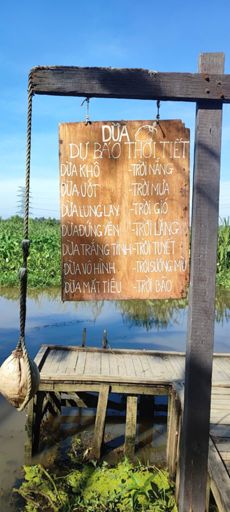 DỪA
DỰ BÁO THỜI TIẾT
DỪA KHÔ -TRỜI NẮNG
DỪA ƯỚT -TRỜI MƯA
DỪA LUNG LAY -TRỜI GIÓ
DỪA ĐỨNG YÊN -TRỜI LẶNG
DỪA TRẮNG TINH -TRỜI TUYẾT
DỪA VÔ HÌNH -TRỜI SƯƠNG MÙ
DỪA MẤT TIÊU -TRỜI BÃO